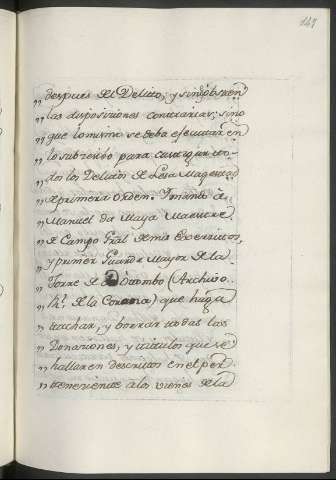 147
despues del Delito, y sin obstar en
„ las disposiciones contrarias; sino
„ que lo mismo se deba ejecutar en
„ lo subcesibo para
„ dos los Delitos de Lesa Magestad
„ de primera orden. Y mando à
„ Manuel da Maya Maestre
„ de Campo Gral de mis Exercitos,
„ y primer Guarda Mayor de la
„ Torre de Do Tumbo (Archivo
„ Rl. de la Corona) que haga
„ tachar, y borrar todas las
„ Donaciones, y titulos que se
„ hallaren descritos en el per
„ teneciente a los vienes de la